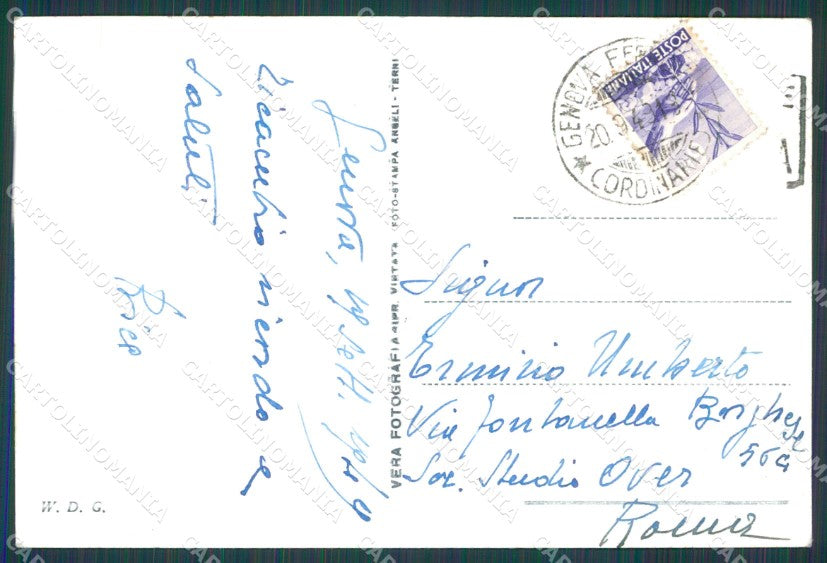 Genova, 19 Sett. 1949
Ricambio ricordo e
Saluti
VERA FOTOGRAFIA RIPR. VIETATA FOTO-STAMPA ANGELI - TERNI
W. D. G.
POSTE ITALIANE
GENOVA FERR
20.9.49
CORDINARIE
Signor
Erminio Umberto
Via Fontanella Borghese
56a
Soc. Studio Over
Roma
CARTOLINOMANIA